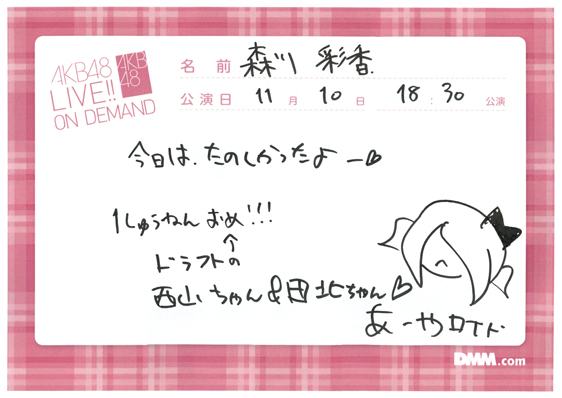 AKB48
LIVE!!
ON DEMAND
AKB
48
名 前 森川 彩香.
公演日 11 月 10 日 18 : 30 公演
今日は、たのしかったよー♡
1しゅうねん おめ!!!
↑
ドラフトの
西山ちゃん&田北ちゃん♡
あーやロイド
DMM.com